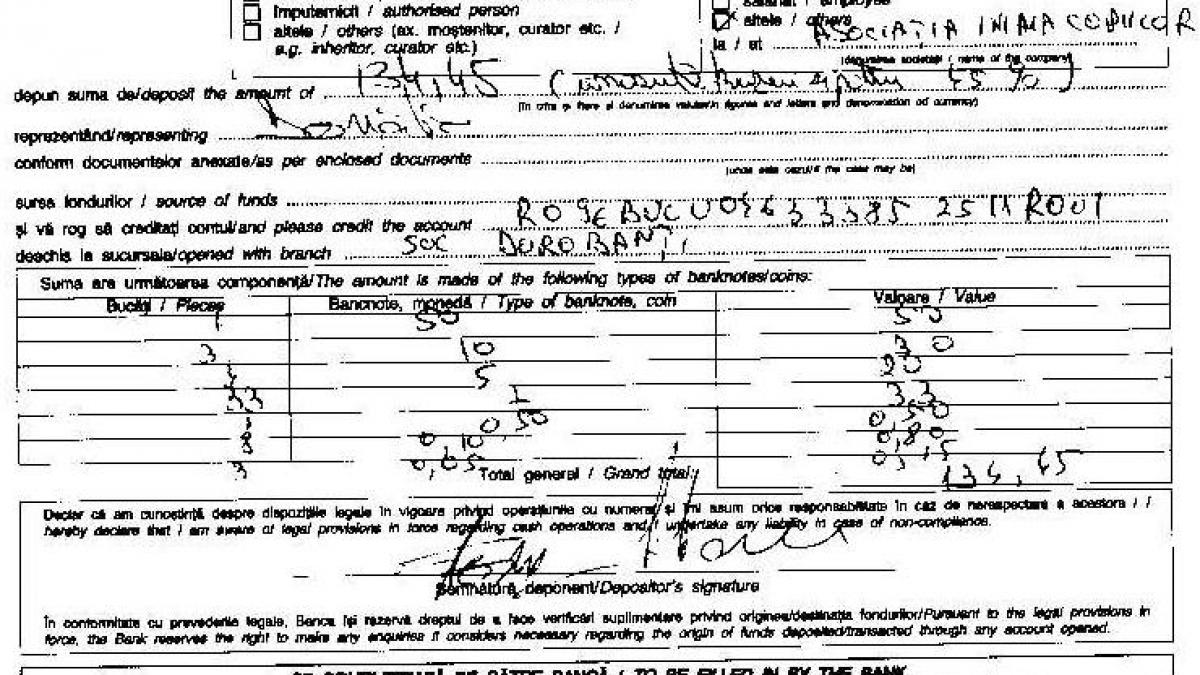 Imputernicit / authorised person
altele / others (ex. moştenitor, curator etc. /
e.g. inheritor, curator etc.)
altele / others
la / at ASOCIATIA INIMA COPIILOR
(denumirea societăţii / name of the company)
depun suma de/deposit the amount of 134,45
(în cifre şi litere şi denumirea valutei/in figures and letters and denomination of currency)
reprezentând/representing
conform documentelor anexate/as per enclosed documents
(unde este cazul/if the case may be)
sursa fondurilor / source of funds
şi vă rog să creditaţi contul/and please credit the account
deschis la sucursala/opened with branch SUC DOROBANTI
Suma are următoarea componenţă/The amount is made of the following types of banknotes/coins:
Bucăţi / Pieces Bancnote, monedă / Type of banknote, coin Valoare / Value
1 50 50
3 10 30
5 20
33 1 33
0,50 0,50
8 0,10 0,80
3 0,05 0,15
Total general / Grand total 134,45
Declar că am cunoştinţă despre dispoziţiile legale în vigoare privind operaţiunile cu numerar şi îmi asum orice responsabilitate în caz de nerespectare a acestora / I
hereby declare that I am aware of legal provisions in force regarding cash operations and I undertake any liability in case of non-compliance.
Semnătură deponent/Depositor's signature
În conformitate cu prevederile legale, Banca îşi rezervă dreptul de a face verificări suplimentare privind originea/destinaţia fondurilor/Pursuant to the legal provisions in
force, the Bank reserves the right to make any enquiries it considers necessary regarding the origin of funds deposited/transacted through any account opened.
TO BE FILLED IN BY THE BANK